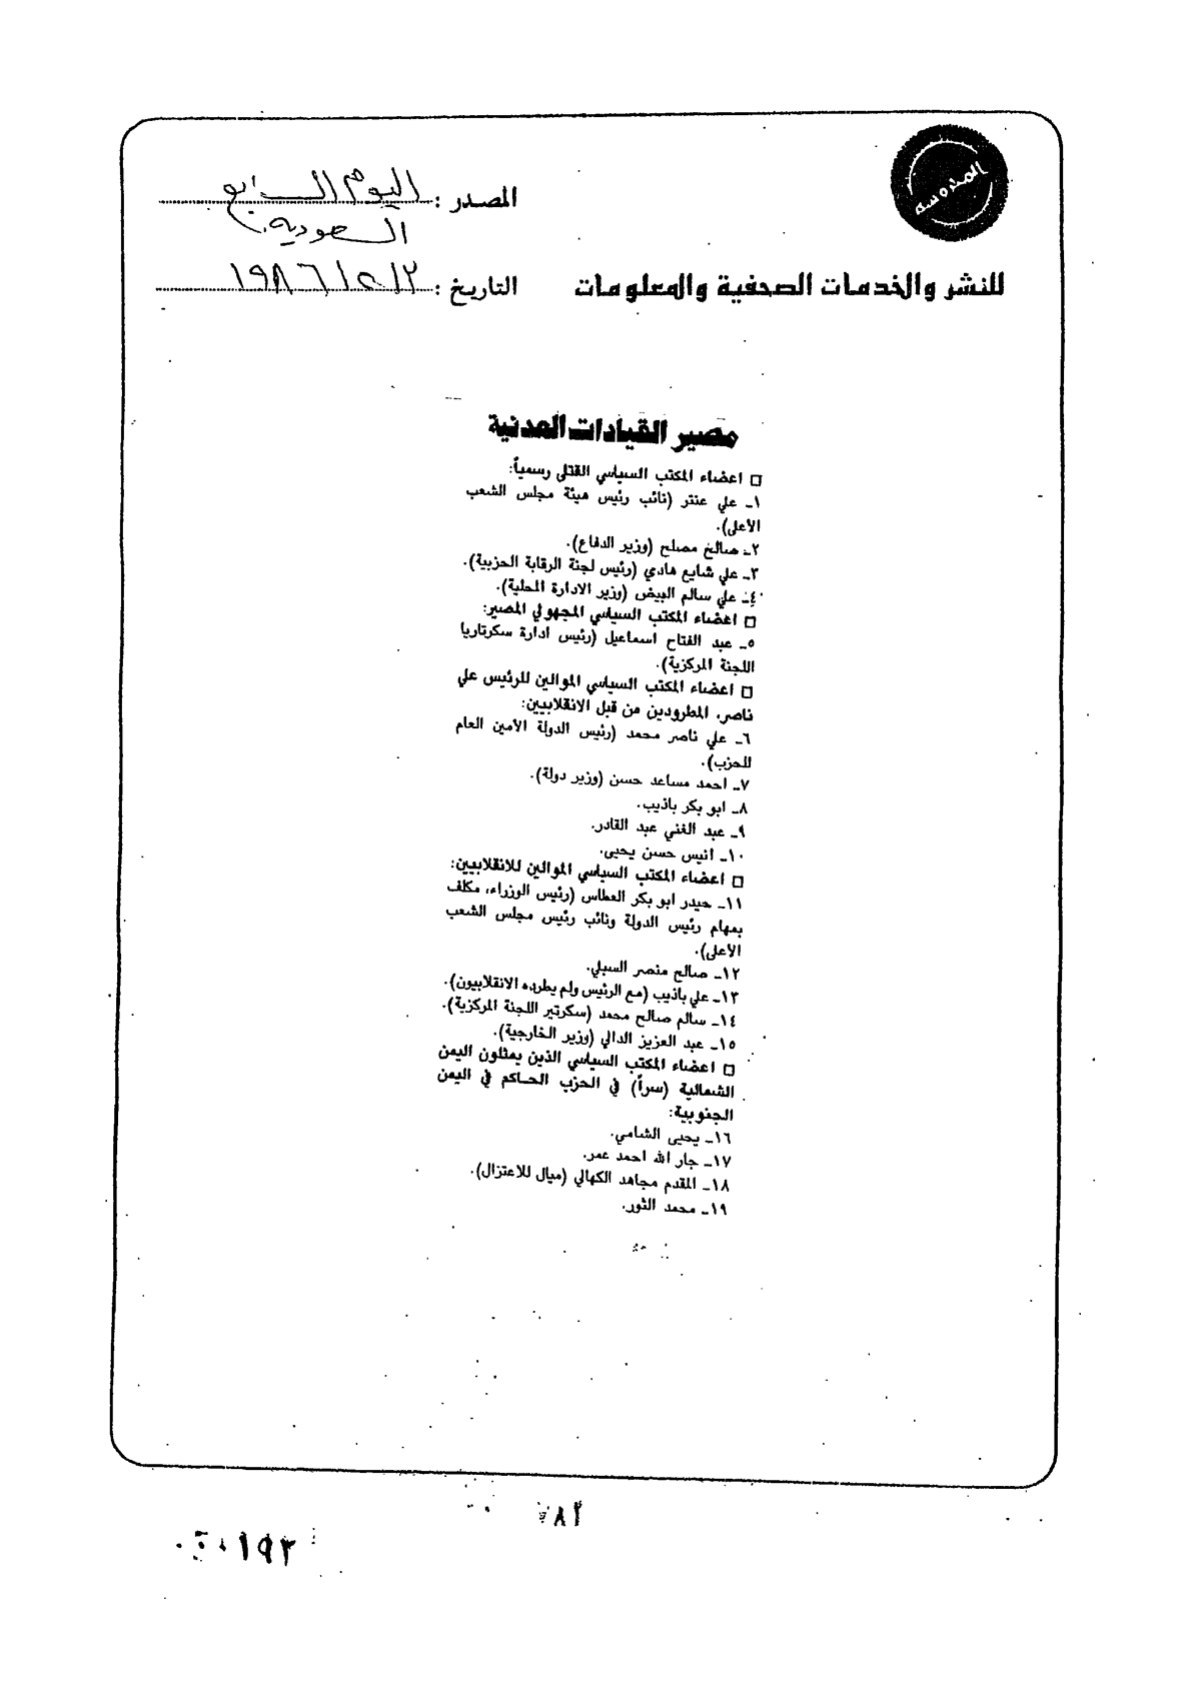 المصدر : اليوم السابع
السعودية
للنشر والخدمات الصحفية والمعلومات
التاريخ :
مصير القيادات العدنية
□ اعضاء المكتب السياسي القتلى رسمياً:
١ـ علي عنتر (نائب رئيس هيئة مجلس الشعب
الأعلى).
٢ـ صالح مصلح (وزير الدفاع).
٣ـ علي شايع هادي (رئيس لجنة الرقابة الحزبية).
٤ـ علي سالم البيض (وزير الادارة المحلية).
□ اعضاء المكتب السياسي المجهولي المصير:
٥ـ عبد الفتاح اسماعيل (رئيس ادارة سكرتاريا
اللجنة المركزية).
□ اعضاء المكتب السياسي الموالين للرئيس علي
ناصر، المطرودين من قبل الانقلابيين:
٦ـ علي ناصر محمد (رئيس الدولة الأمين العام
للحزب).
٧ـ احمد مساعد حسن (وزير دولة).
٨ـ ابو بكر باذيب.
٩ـ عبد الغني عبد القادر.
١٠ـ انيس حسن يحيى.
□ اعضاء المكتب السياسي الموالين للانقلابيين:
١١ـ حيدر ابو بكر العطاس (رئيس الوزراء، مكلف
بمهام رئيس الدولة ونائب رئيس مجلس الشعب
الأعلى).
١٢ـ صالح منصر السيلي.
١٣ـ علي باذيب (مع الرئيس ولم يطرده الانقلابيون).
١٤ـ سالم صالح محمد (سكرتير اللجنة المركزية).
١٥ـ عبد العزيز الدالي (وزير الخارجية).
□ اعضاء المكتب السياسي الذين يمثلون اليمن
الشمالية (سراً) في الحزب الحاكم في اليمن
الجنوبية:
١٦ـ يحيى الشامي.
١٧ـ جار الله احمد عمر.
١٨ـ المقدم مجاهد الكهالي (ميال للاعتزال).
١٩ـ محمد الثور.